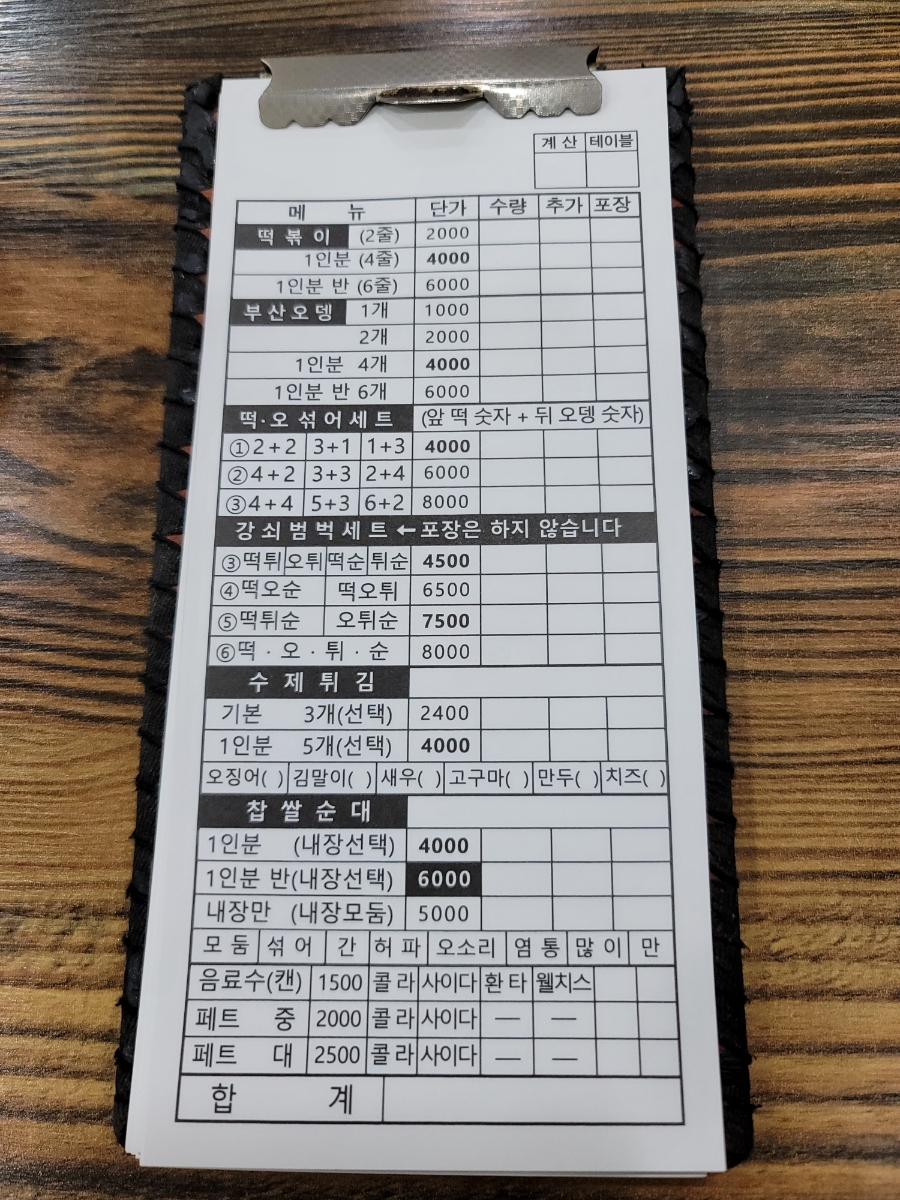 계 산 테이블
메 뉴 단가 수량 추가 포장
떡 볶 이 (2줄) 2000
1인분 (4줄) 4000
1인분 반 (6줄) 6000
부산오뎅 1개 1000
2개 2000
1인분 4개 4000
1인분 반 6개 6000
떡·오 섞어세트 (앞 떡 숫자 + 뒤 오뎅 숫자)
①2+2 3+1 1+3 4000
②4+2 3+3 2+4 6000
③4+4 5+3 6+2 8000
강쇠범벅세트 ←포장은 하지 않습니다
③떡튀 오튀 떡순 튀순 4500
④떡오순 떡오튀 6500
⑤떡튀순 오튀순 7500
⑥떡 · 오 · 튀 · 순 8000
수 제 튀 김
기본 3개(선택) 2400
1인분 5개(선택) 4000
오징어( ) 김말이( ) 새우( ) 고구마( ) 만두( ) 치즈( )
찹 쌀 순 대
1인분 (내장선택) 4000
1인분 반(내장선택) 6000
내장만 (내장모둠) 5000
모 둠 섞 어 간 허 파 오소리 염 통 많 이 만
음료수(캔) 1500 콜 라 사이다 환 타 웰치스
페트 중 2000 콜 라 사이다 — —
페트 대 2500 콜 라 사이다 — —
합 계